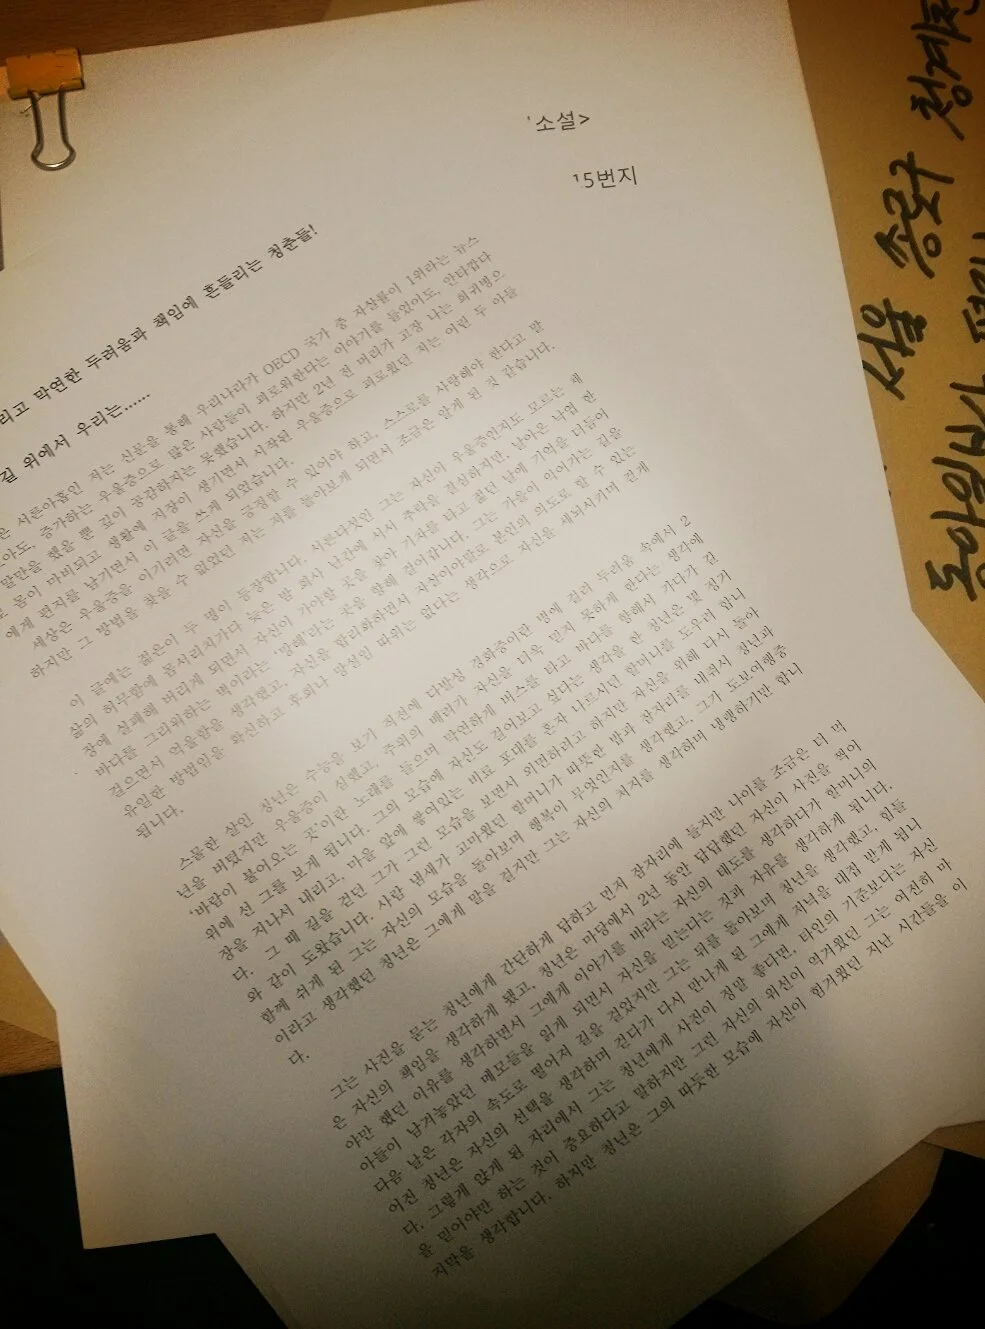 소설>
15번지
리고 막연한 두려움과 책임에 흔들리는 청춘들!
길 위에서 우리는......
은 서른아홉인 저는 신문을 통해 우리나라가 OECD 국가 중 자살률이 1위라는 뉴스
아도, 증가하는 우울증으로 많은 사람들이 괴로워한다는 이야기를 들었어도, 안타깝다
말만을 했을 뿐 깊이 공감하지는 못했습니다. 하지만 2년 전 머리가 고장 나는 희귀병으
로 몸이 마비되고 생활에 지장이 생기면서 시작된 우울증으로 괴로웠던 저는 어린 두 아들
에게 편지를 남기면서 이 글을 쓰게 되었습니다.
세상은 우울증을 이기려면 자신을 긍정할 수 있어야 하고, 스스로를 사랑해야 한다고 말
하지만 그 방법을 찾을 수 없었던 저는 저를 돌아보게 되면서 조금은 알게 된 것 같습니다.
이 글에는 젊은이 두 명이 등장합니다. 서른다섯인 그는 자신이 우울증인지도 모르는 채
삶의 허무함에 몸서리치다 늦은 밤 회사 난간에 서서 추락을 결심하지만, 남아온 난업 한
장에 실패해 버리게 되면서 자신이 가야할 곳을 찾아 기차를 타고 젊던 날에 기억을 더듬어
바다를 그리워하는 벽이라는 '방해'라는 곳을 향해 걸어갑니다. 그는 가을이 익어가는 길을
걸으면서 억울함을 생각했고, 자신을 합리화하면서 자살이야말로 본인의 의도로 할 수 있는
유일한 방법임을 확신하고 후회나 망설임 따위는 없다는 생각으로 자신을 세뇌시키며 걷게
됩니다.
스물한 살인 청년은 수능을 보기 직전에 다발성 경화증이란 병에 걸려 두려움 속에서 2
년을 버텼지만 우울증이 심했고, 주위의 배려가 자신을 더욱 믿지 못하게 한다는 생각에
'바람이 불어오는 곳'이란 노래를 들으며 막연하게 버스를 타고 바다를 향해서 가다가 길
위에 선 그를 보게 됩니다. 그의 모습에 자신도 걸어보고 싶다는 생각을 한 청년은 몇 정거
장을 지나서 내리고, 마을 앞에 쌓여있는 비료 포대를 혼자 나르시던 할머니를 도우려 합니
다. 그 때 길을 걷던 그가 그런 모습을 보면서 외면하려고 하지만 자신을 위해 다시 돌아
와 같이 도왔습니다. 사람 냄새가 고마웠던 할머니가 따뜻한 밥과 잠자리를 내줘서 청년과
함께 쉬게 된 그는 자신의 모습을 돌아보며 행복이 무엇인지를 생각했고, 그가 도보여행중
이라고 생각했던 청년은 그에게 말을 걸지만 그는 자신의 처지를 생각하며 냉랭하기만 합니
다.
그는 사진을 묻는 청년에게 간단하게 답하고 먼저 잠자리에 들지만 나이를 조금은 더 먹
은 자신의 책임을 생각하게 됐고, 청년은 마당에서 2년 동안 답답했던 자신이 사진을 찍어
야만 했던 이유를 생각하면서 그에게 이야기를 바라는 자신의 태도를 생각하다가 할머니의
아들이 남겨놓았던 메모들을 읽게 되면서 자신을 믿는다는 것과 자유를 생각하게 됩니다.
다음 날은 각자의 속도로 떨어져 길을 걸었지만 그는 뒤를 돌아보며 청년을 생각했고, 힘들
어진 청년은 자신의 선택을 생각하며 걷다가 다시 만나게 된 그에게 저녁을 대접 받게 됩니
다. 그렇게 앉게 된 자리에서 그는 청년에게 사진이 정말 좋다면, 타인의 기준보다는 자신
을 믿어야만 하는 것이 중요하다고 말하지만 그런 자신의 위선이 역겨웠던 그는 여전히 마
지막을 생각합니다. 하지만 청년은 그의 따뜻한 모습에 자신이 힘겨웠던 지난 시간들을 이
서울 종로구 청계천
동아일보사